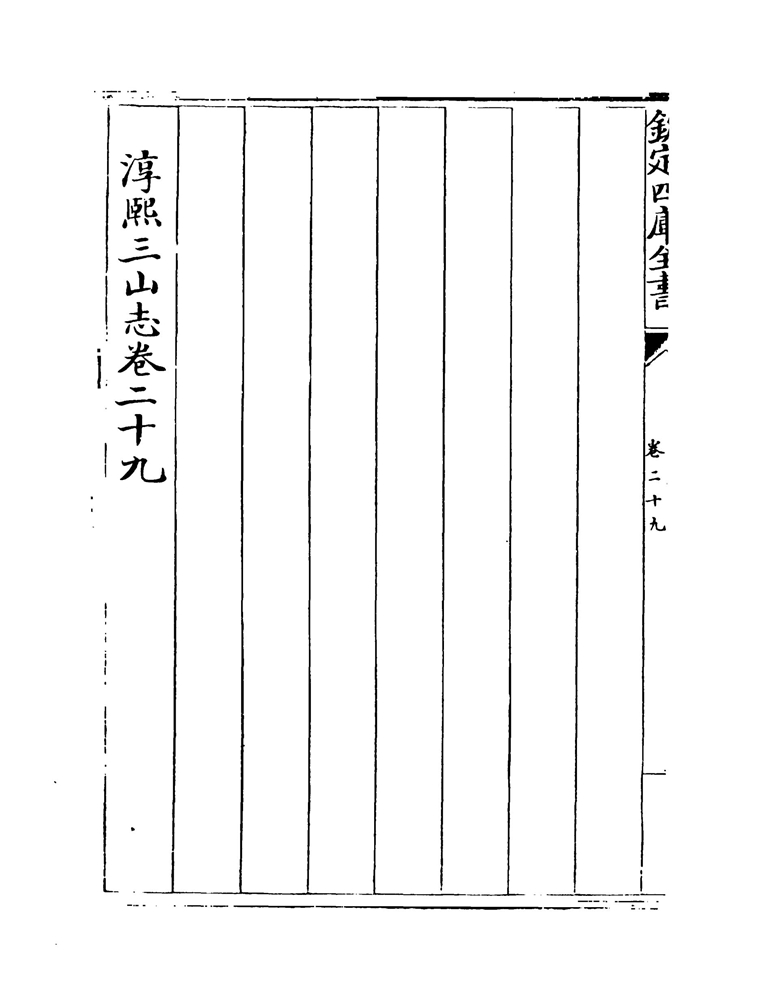 欽定四庫全書
卷二十九
淳熙三山志卷二十九